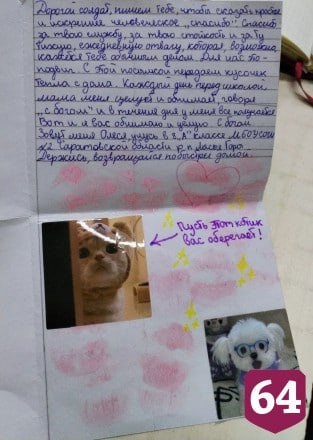 Дорогой солдат, пишем тебе, чтобы сказать простое
и искреннее человеческое ,,спасибо". Спасибо
за твою службу, за твою стойкость и за ту
тихую, ежедневную отвагу, которая, возможно,
кажется тебе обычным делом. Для нас это-
подвиг. С этой посылкой передаем кусочек
тепла с дома. Каждый день перед школой
мама меня целует и обнимает, говоря
,,с богом" и в течении дня у меня все получается
Вот и я вас обнимаю и целую. С богом
Зовут меня Олеся, учусь в 2 ,,А" классе МБОУ СОШ
№2 Саратовской области р.п Лысые Горы.
Держись, возвращайся побыстрее домой
Пусть этот котик
вас оберегает!
64